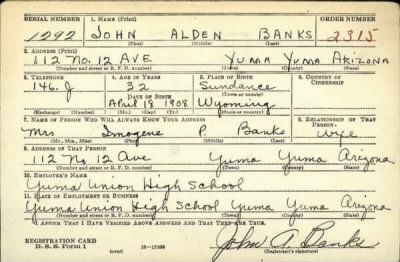 SERIAL NUMBER 1. NAME (Print) ORDER NUMBER
1292 JOHN ALDEN BANKS 2315
(First) (Middle) (Last)
2. ADDRESS (Print)
112 No. 12 AVE YUMA YUMA ARIZONA
(Number and street or R. F. D. number) (Town) (County) (State)
3. TELEPHONE 4. AGE IN YEARS 5. PLACE OF BIRTH 6. COUNTRY OF CITIZENSHIP
146-J 32 Sundance
DATE OF BIRTH (Town or county)
April 18 1908 Wyoming
(Exchange) (Number) (Mo.) (Day) (Yr.) (State or country)
7. NAME OF PERSON WHO WILL ALWAYS KNOW YOUR ADDRESS 8. RELATIONSHIP OF THAT PERSON
Mrs Imogene P. Banks Wife
(Mr., Mrs., Miss) (First) (Middle) (Last)
9. ADDRESS OF THAT PERSON
112 No 12 Ave Yuma Yuma Arizona
(Number and street or R. F. D. number) (Town) (County) (State)
10. EMPLOYER'S NAME
Yuma Union High School
11. PLACE OF EMPLOYMENT OR BUSINESS
Yuma Union High School Yuma Yuma Arizona
(Number and street or R. F. D. number) (Town) (County) (State)
I AFFIRM THAT I HAVE VERIFIED ABOVE ANSWERS AND THAT THEY ARE TRUE.
REGISTRATION CARD
D. S. S. Form 1 (over) 16-17105 John A. Banks
(Registrant's signature)